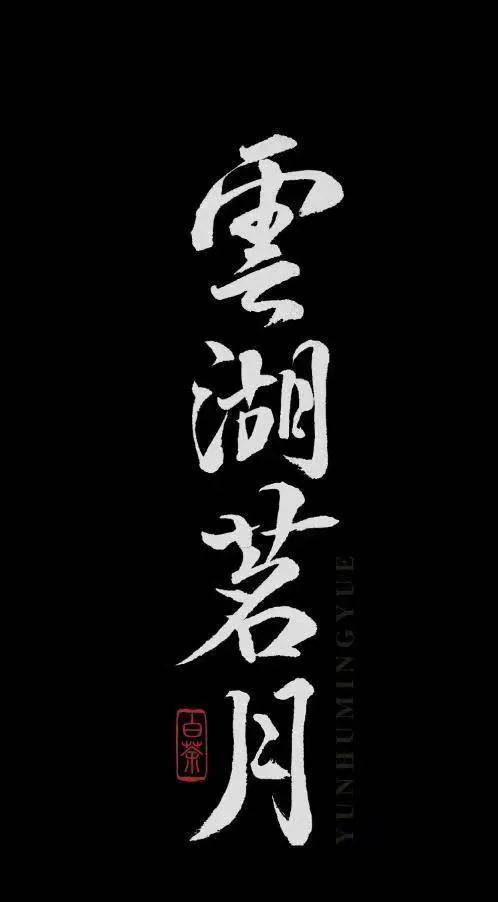 雲湖茗月
YUNHUMINGYUE
百茶